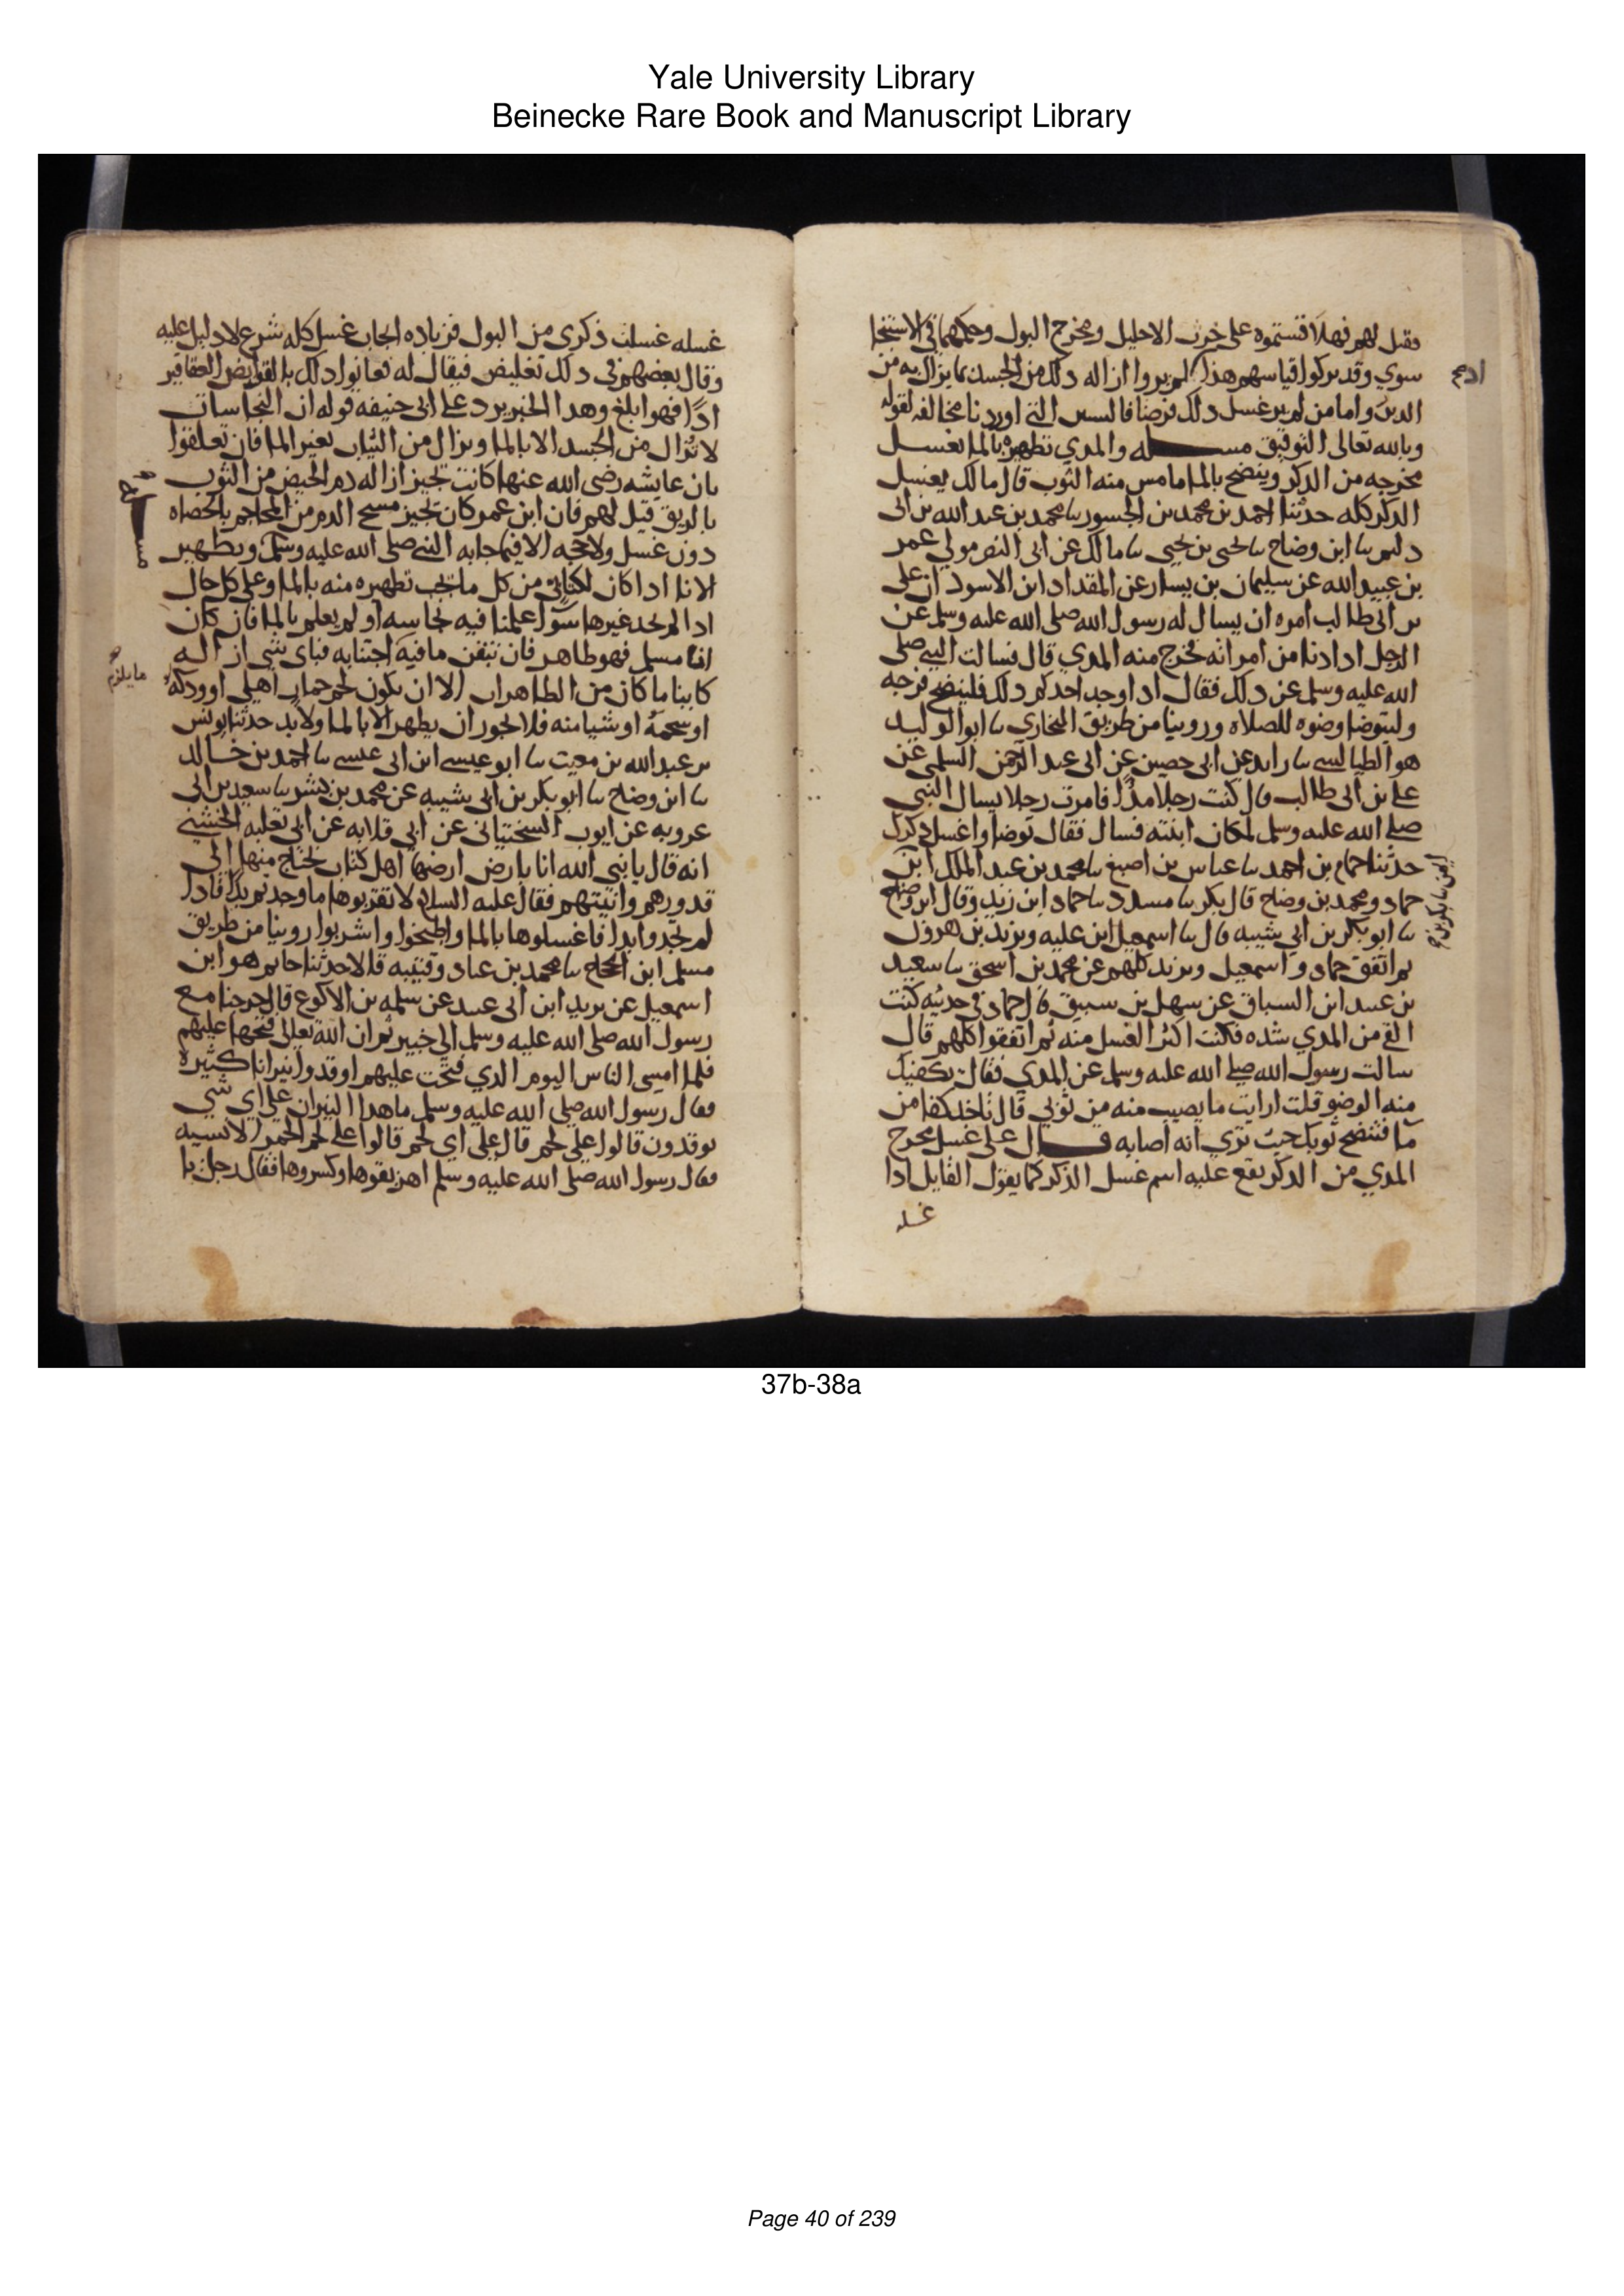 Yale University Library
Beinecke Rare Book and Manuscript Library
فقيل لهم فهلا قستموه على خرت الاحليل ومخرج البول وحكمهما في الاستنجا
سوي وقد تركوا قياسهم هذا اذ لم يروا ازاله ذلك من الجسد بما يزال به من
ادم
الدبر واما من لم ير غسل ذلك فرضا فالسنن التي اوردنا مخالفه لقوله
وبالله تعالى التوفيق مسله والمدي تطهيره بالما يغسل
مخرجه من الدكر وينضح بالما ما مس منه الثوب قال مالك يغسل
الدكر كله حدثنا احمد بن محمد بن الجسور نا محمد بن عبد الله بن ابي
دليم نا ابن وضاح نا يحيى بن يحيى نا مالك عن ابي النضر مولي عمر
بن عبيد الله عن سليمان بن يسار عن المقداد ابن الاسود ان على
بن ابي طالب امره ان يسال له رسول الله صلى الله عليه وسلم عن
الرجل ادا دنا من امراته فخرج منه المدي قال فسالت النبي صلى
الله عليه وسلم عن دلك فقال ادا وجد احدكم دلك فلينضح فرجه
وليتوضا وضوه للصلاه وروينا من طريق البخاري نا ابو الوليد
هو الطيالسي نا زايده عن ابي حصين عن ابي عبد الرحمن السلمي عن
علي بن ابي طالب قال كنت رجلا مذا فامرت رجلا يسال النبي
صلى الله عليه وسلم لمكان ابنته فسال فقال توضا واغسل دكرك
حدثنا حمام بن احمد نا عباس بن اصبغ نا محمد بن عبد الملك ابن
ايمن نا بكر بن
حماد ومحمد بن وضاح قال بكر نا مسدد نا حماد ابن زيد وقال ابن وضاح
نا ابو بكر بن ابي شيبه قال نا اسمعيل ابن عليه ويزيد بن هرون
ثم اتفق حماد واسمعيل ويزيد كلهم عن محمد بن اسحق نا سعيد
بن عبيد ابن السباق عن سهل بن قال حماد في حديثه كنت
القي من المدي شده فكنت اكثر الغسل منه ثم اتفقوا كلهم قال
سالت رسول الله صلى الله عليه وسلم عن المدي فقال يكفيك
منه الوضو قلت ارايت ما يصيب منه من ثوبي قال تاخد كفا من
ما فتنضح ثوبك حيث تري انه اصابه قال على غسل مخرج
المدي من الدكر يقع عليه اسم غسل الذكر كما يقول القايل ادا
غسله
غسله غسلت ذكري من البول فزياده ايجاب غسل كله شرع لا دليل عليه
وقال بعضهم في دلك تغليض فيقال له فعانوا دلك بالقوابض العقاقير
اذا فهو ابلغ وهدا الخبر يرد على ابي حنيفه قوله ان النجاسات
لا تزال من الجسد الا بالما وتزال من الثياب بغير الما فان تعلقوا
بان عايشه رضى الله عنها كانت تجيز ازاله دم الحيض من الثوب
بالريق قيل لهم فان ابن عمر كان يجيز مسح الدم من المحاجم بالحصاه
دون غسل ولا حجه الا فيما جا به النبي صلى الله عليه وسلم وتطهير
الانا ادا كان لكتابي من كل ما تجب تطهيره منه بالما وعلى كل حال
ادا لم يجد غيرها سوا علمنا فيه نجاسه او لم يعلم بالما فان كان
انا مسلم فهو طاهر فان تيقن ما فيه اجتنابه فباي شي ازاله
ما يلزم
كاينا ما كان من الطاهرات الا ان يكون لحم حمار اهلي او ودكه
او شحمه او شيا منه فلا يجوز ان يطهر الا بالما ولا بد حدثنا يونس
بن عبد الله بن مغيث نا ابو عيسى ابن ابي عيسى نا احمد بن خالد
نا ابن وضاح نا ابو بكر بن ابي شيبه عن محمد بن بشر نا سعيد بن ابي
عروبه عن ايوب السختياني عن ابي قلابه عن ابي ثعلبه الخشني
انه قال يا نبي الله انا بارض ارضها اهل كتاب نحتاج منها الى
قدورهم وانيتهم فقال عليه السلام لا تقربوها ما وجدتم بدا فادا
لم تجدوا بدا فاغسلوها بالما واطبخوا واشربوا روينا من طريق
مسلم ابن الحجاج نا محمد بن عباد وقتيبه قالا حدثنا حاتم هو ابن
اسمعيل عن يزيد ابن ابي عبيد عن سلمه بن الاكوع قال خرجنا مع
رسول الله صلى الله عليه وسلم الى خيبر ثم ان الله تعالى فتحها عليهم
فلما امسى الناس اليوم الدي فتحت عليهم اوقدوا نيرانا كثيره
فقال رسول الله صلى الله عليه وسلم ما هدا النيران على اي شي
توقدون قالوا على لحم قال على اي لحم قالوا على لحم الحمر الانسيه
فقال رسول الله صلى الله عليه وسلم اهريقوها واكسروها فقال رجل يا
37b-38a
Page 40 of 239